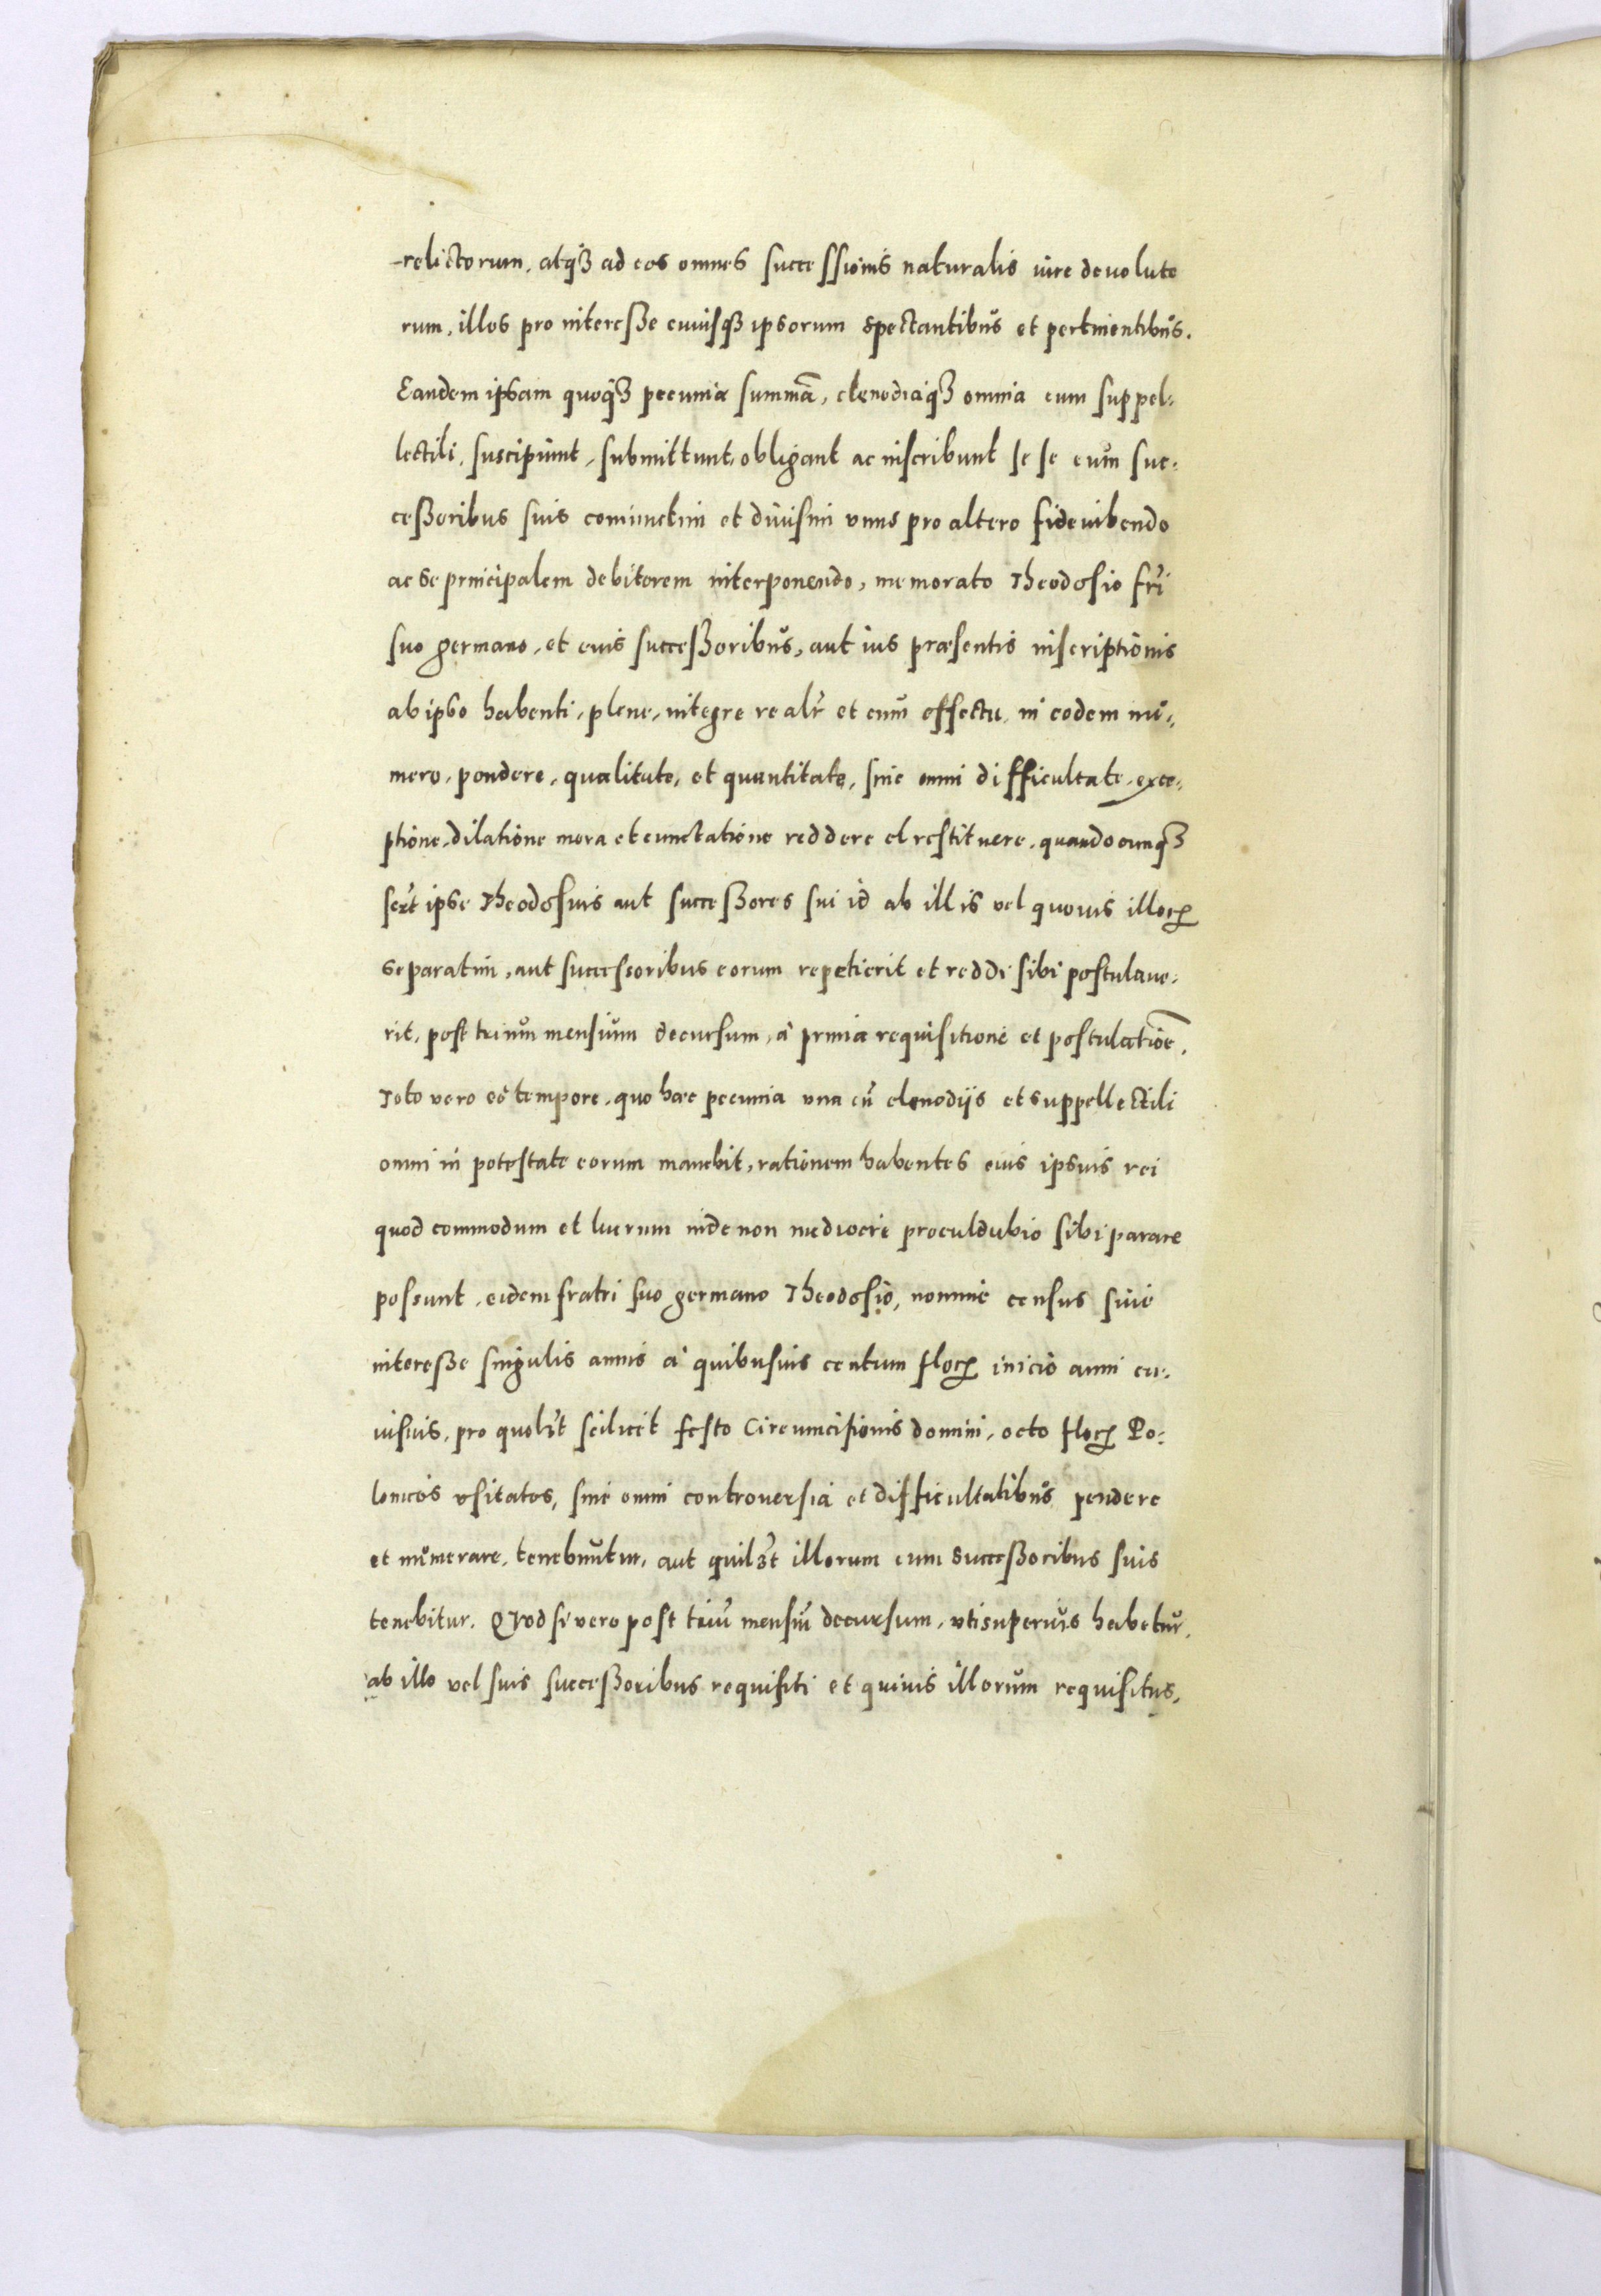 relictorum, atq₃ ad eos omnes successionis naturalis iure deuoluto
rum, illos pro interesse cuiusq₃ ipsorum spectantibus et pertinentibus.
Eandem ipsam quoq₃ pecuniæ summā, clenodiaq₃ omnia cum suppel-
lectili, suscipiunt, submittunt, obligant ac inscribunt se se cum suc-
cessoribus suis coniunctim et diuisim vnus pro altero fideiubendo
ac se principalem debitorem interponendo, memorato Theodosio fr̃i
suo germano, et eius successoribus, aut ius præsentis inscriptionis
ab ipso habenti, plene, integre realr̃ et cum effectu, in eodem nu-
mero, pondere, qualitate, et quantitate, sine omni difficultate, exce-
ptione, dilatione mora et cunctatione reddere et restituere, quandocunq₃
ipse Theodosius aut successores sui id ab illis vel quouis illorꝝ
separatim, aut successoribus eorum repetierit et reddi sibi postulaue-
rit, post trium mensium decursum, à prima requisitione et postulatiōe.
Toto vero eo tempore, quo hæc pecunia vna cū clenodijs et suppellectili
omni in potestate eorum manebit, rationem habentes eius ipsius rei
quod commodum et lucrum inde non mediocre proculdubio sibi parare
possunt, eidem fratri suo germano Theodosio, nomine census siue
interesse singulis annis à quibusuis centum florꝝ inicio anni cu-
iusuis, pro quol₃t scilicet festo Circumcisionis domini, octo florꝝ Po-
lonicos vsitatos, sine omni controuersia et difficultatibus pendere
et numerare, tenebuntur, aut quil₃t illorum cum successoribus suis
tenebitur. Quod si vero post triū mensiū decursum, vti superius habetur,
ab illo vel suis successoribus requisiti et quiuis illorum requisitus,